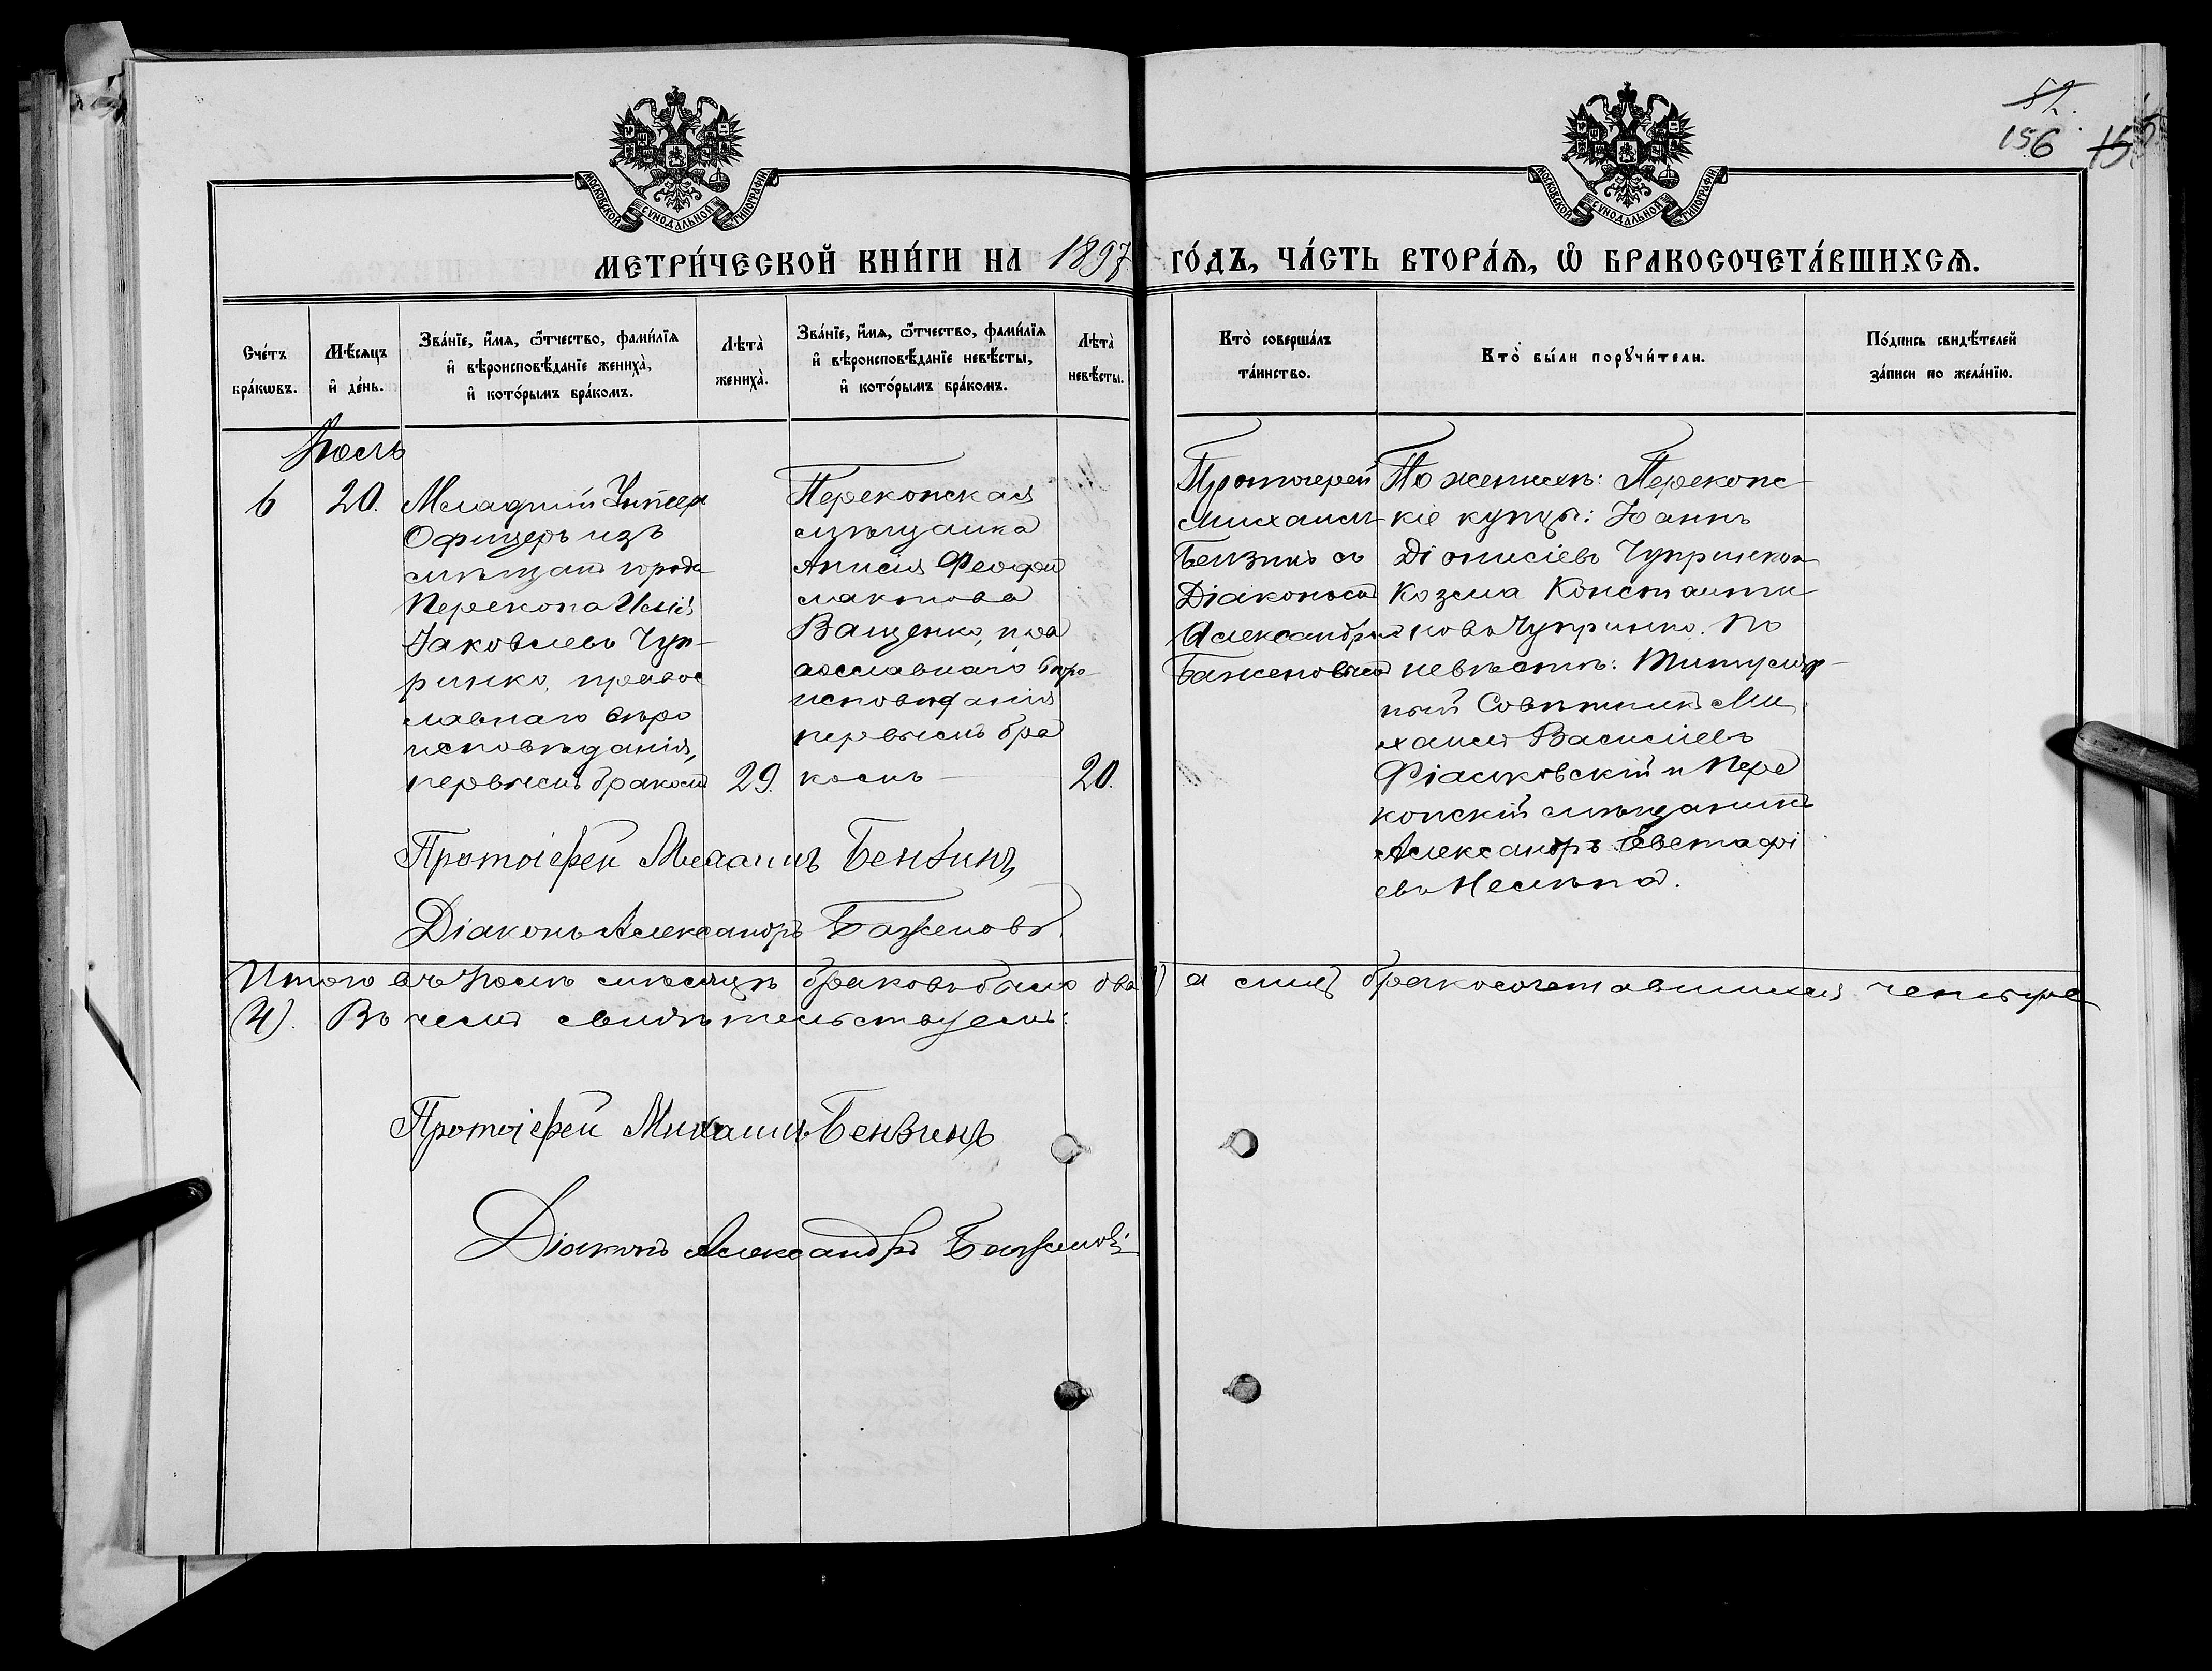 52.
156 155
МОСКОВСКОЙ СѴНОДАЛЬНОЙ ТИПОГРАФІИ
МОСКОВСКОЙ СѴНОДАЛЬНОЙ ТИПОГРАФІИ
МЕТРИ́ЧЕСКОЙ КНИ́ГИ НА 1897 ГО́ДЪ, ЧА́СТЬ ВТОРА́Ѧ, Ѽ БРАКОСОЧЕТА́ВШИХСѦ.
Сче́тъ
бра́кωвъ.
Мѣ́сяцъ
и҆ де́нь.
Зва́нїе, и҆́мя, ѻ҆́тчество, фами́лїя
и҆ вѣроисповѣ́данїе жениха̀,
и҆ кото́рымъ бра́комъ.
Лѣта̀
жениха̀.
Зва́нїе, и҆́мя, ѻ҆́тчество, фами́лїя
и҆ вѣроисповѣ́данїе невѣ́сты,
и҆ кото́рымъ бра́комъ.
Лѣта̀
невѣ́сты.
Кто̀ соверша́лъ
та́инство.
Кто̀ бы́ли порꙋчи́тели.
По́дпись свидѣ́телей
за́писи по жела́нїю.
Іюль
6
20.
Младшій Унтеръ
Офицеръ изъ
мѣщанъ города
Перекопа Илія
Іаковлевъ Чуп-
ринко, правос
лавнаго вѣро
исповѣданія,
первымъ бракомъ
29.
Перекопская
мѣщанка
Анисія Феофи
лактова
Ващенко, пра
вославнаго вѣро-
исповѣданія
первымъ бра
комъ
20.
Протоіерей
Михаилъ
Бензинъ съ
Діакономъ
Александромъ
Баженовымъ
По женихѣ: Перекопс-
кіе купцы: Іоаннъ
Діонисіевъ Чупринко и
Козма Константи
новъ Чупринко. По
невѣстѣ: Титуляр-
ный Совѣтникъ Ми
хаилъ Василіевъ
Фіалковскій и Пере
копскій мѣщанинъ
Александръ Евстафі
евъ Нелѣпа.
Протоіерей Михаилъ Бензинъ
Діаконъ Александръ Баженовъ.
Итого въ Іюлѣ мѣсяцѣ браковъ было два а лицъ бракосочетавшихся четыре
(4). Въ чемъ свидѣтельствуемъ:
Протоіерей Михаилъ Бензинъ
Діаконъ Александръ Баженовъ